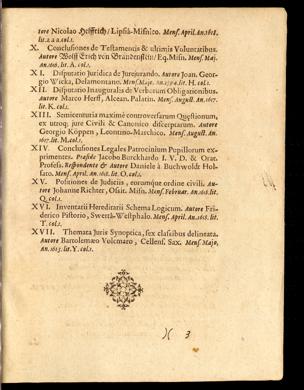 tore Nicolao Helffrich/ Lipsiâ-Misnico. Mens. An.1618.
lit.2.a.a.col.1.
X. Conclusiones de Testamentis & ultimis Voluntatibus.
Autore Wolff Erich von Brandenstein/ Eq. Misn. Mens. Maj.
An. 1616. lit. A. col.1.
XI. Disputatio Juridica de Jurejurando. Autore Joan. Geor-
gio Wicka, Delamontano. Mens. Maj. An. lit. H. col.1.
XII. Disputatio Inauguralis de Verborum Obligationibus.
Autore Marco Herff, Alcean. Palatin. Mens. August. An. 1617.
lit. K. col.1.
XIII. Semicenturia maximè controversarum Quæstionum,
ex utroq; jure Civili & Canonico discerptarum. Autore
Georgio Köppen, Leontino-Marchico. Mens. August. An.
1617. lit. M. col.1.
XIV. Conclusiones Legales Patrocinium Pupillorum ex-
primentes. Præside Jacobo Burckhardo I. V. D. & Orat.
Profess. Respondente & Autore Daniele à Buchwoldt Hol-
sato. Mens. April. An. 1618. lit. O. col.1.
XV. Positiones de Judiciis, eorumque ordine civili. Au-
tore Johanne Richter, Osit. Misn. Mens. Februar. An. 1618. lit.
Q. col.1.
XVI. Inventarii Hereditarii Schema Logicum. Autore Fri-
derico Pistorio, Swertâ-Westphalo. Mens. April. An. 1618. lit.
T. col.1.
XVII. Themata Juris Synoptica, sex classibus delineata.
Autore Bartolemæo Volcmaro, Cellens. Sax. Mens. Majo,
An. 1613. lit. Y. col.1.
)( 3